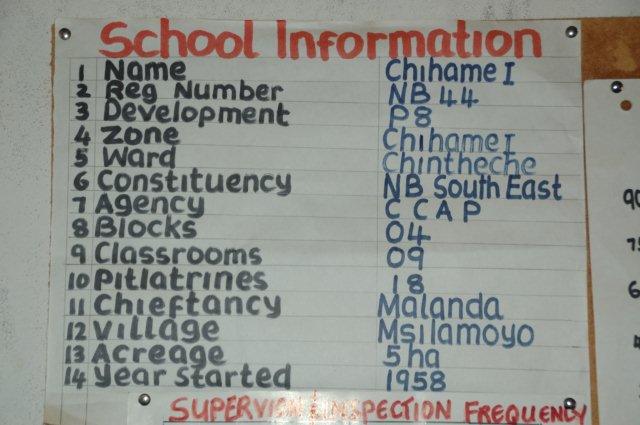 School Information
1 Name Chihame I
2 Reg Number NB 44
3 Development P8
4 Zone Chihame I
5 Ward Chintheche
6 Constituency NB South East
7 Agency C C A P
8 Blocks 04
9 Classrooms 09
10 Pitlatrines 18
11 Chieftancy Malanda
12 Village Msilamoyo
13 Acreage 5 ha
14 Year Started 1958
SUPERVISION INSPECTION FREQUENCY